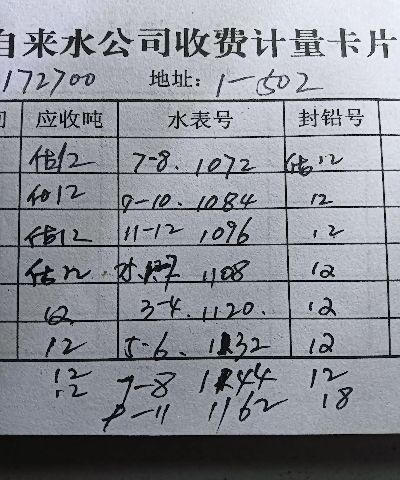 自来水公司收费计量卡片
172700 地址: 1-502
应收吨 水表号 封铅号
估12 7-8. 1072 估12
估12 9-10. 1084 12
估12 11-12 1096 12
估12 1108 12
12 3-4. 1120. 12
12 5-6. 1132 12
12 7-8 1144 12
12 9-11 1162 18